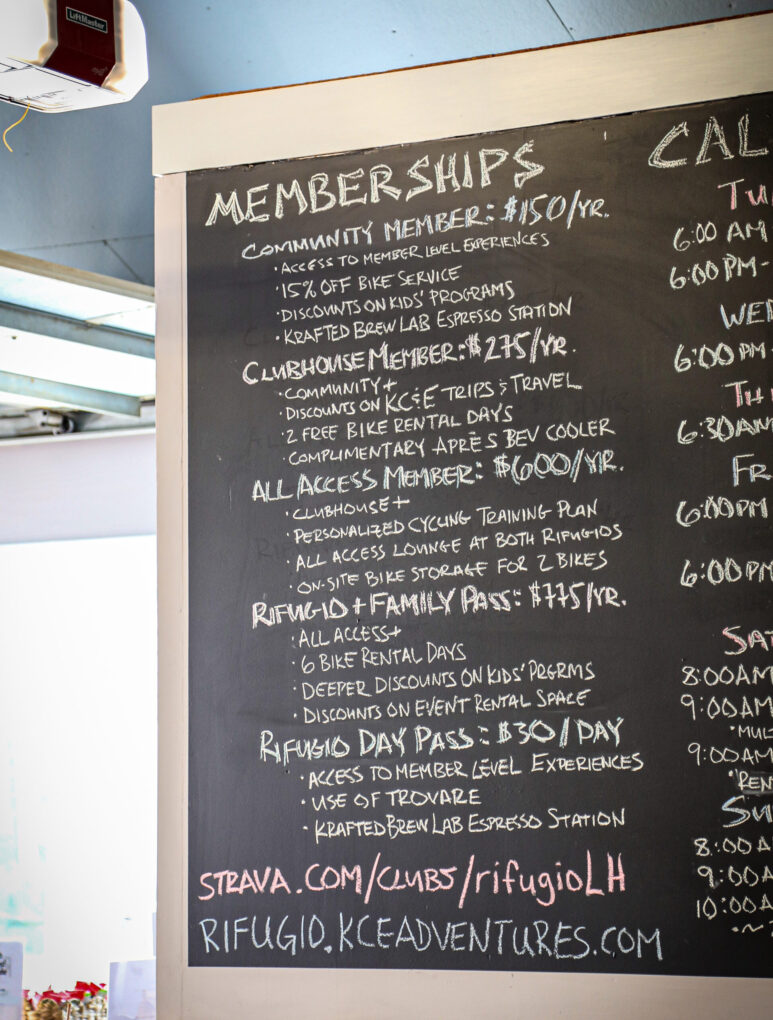 LiftMaster
MEMBERSHIPS
COMMUNITY MEMBER: $150/YR.
· ACCESS TO MEMBER LEVEL EXPERIENCES
· 15% OFF BIKE SERVICE
· DISCOUNTS ON KIDS' PROGRAMS
· KRAFTED BREW LAB ESPRESSO STATION
CLUBHOUSE MEMBER: $275/YR.
· COMMUNITY +
· DISCOUNTS ON KC&E TRIPS & TRAVEL
· 2 FREE BIKE RENTAL DAYS
· COMPLIMENTARY APRÈS BEV COOLER
ALL ACCESS MEMBER: $600/YR.
· CLUBHOUSE +
· PERSONALIZED CYCLING TRAINING PLAN
· ALL ACCESS LOUNGE AT BOTH RIFUGIOS
· ON-SITE BIKE STORAGE FOR 2 BIKES
RIFUGIO + FAMILY PASS: $775/YR.
· ALL ACCESS+
· 6 BIKE RENTAL DAYS
· DEEPER DISCOUNTS ON KIDS' PRGRMS
· DISCOUNTS ON EVENT RENTAL SPACE
RIFUGIO DAY PASS: $30/DAY
· ACCESS TO MEMBER LEVEL EXPERIENCES
· USE OF TROVARE
· KRAFTED BREW LAB ESPRESSO STATION
STRAVA.COM/CLUBS/rifugioLH
RIFUGIO.KCEADVENTURES.COM
CAL
TU
6:00 AM
6:00 PM-
WED
6:00 PM-
TH
6:30AM
FR
6:00PM
6:00PM
SAT
8:00AM
9:00AM
· MUL
9:00AM
· REN
SU
8:00A
9:00A
10:00A